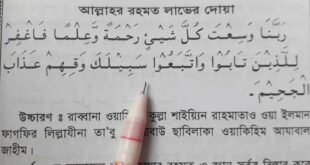 আল্লাহর রহমত লাভের দোয়া
رَبَّنَا وَسِعْتَ كُلَّ شَيْئٍ رَحْمَةً وَّعِلْمًا فَاغْفِرْ
لِلَّذِيْنَ تَابُوْا وَاتَّبَعُوْا سَبِيْلَكَ وَقِهِمْ عَذَابَ
الْجَحِيْمِ۔
উচ্চারণ : রাব্বানা ওয়াছি কুল্লা শাইয়্যিন রাহমাতাও ওয়া ইলমান
ফাগফির লিল্লাযীনা তা'বু আবাউ ছাবিলাকা ওয়াকিহিম আযাবাল
জাহীম।